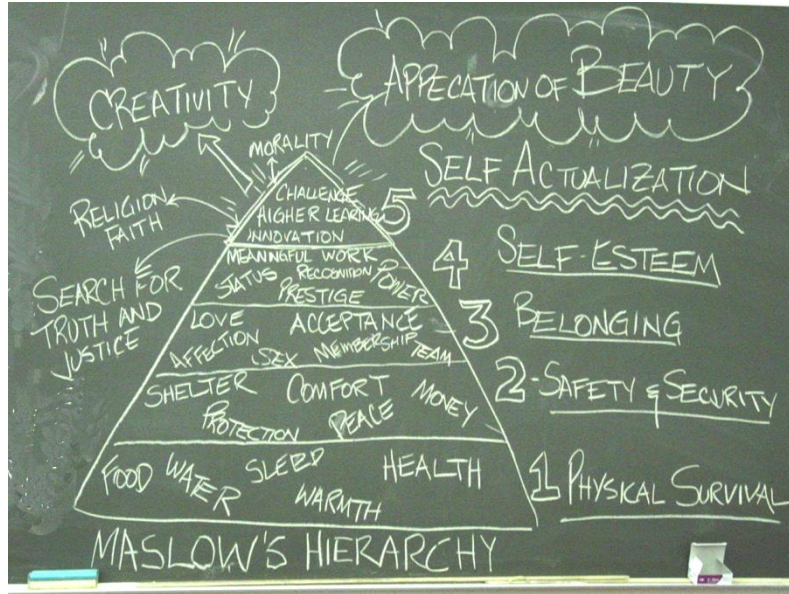 CREATIVITY
APPECATION OF BEAUTY
MORALITY
SELF ACTUALIZATION
CHALLENGE
HIGHER LEARING
INNOVATION
5
RELIGION
FAITH
MEANINGFUL WORK
STATUS RECOGNITION POWER
PRESTIGE
4 SELF-ESTEEM
SEARCH FOR
TRUTH AND
JUSTICE
LOVE ACCEPTANCE
AFFECTION SEX MEMBERSHIP TEAM
3 BELONGING
SHELTER COMFORT MONEY
PROTECTION PEACE
2-SAFETY & SECURITY
FOOD WATER SLEEP HEALTH
WARMTH
1 PHYSICAL SURVIVAL
MASLOW'S HIERARCHY